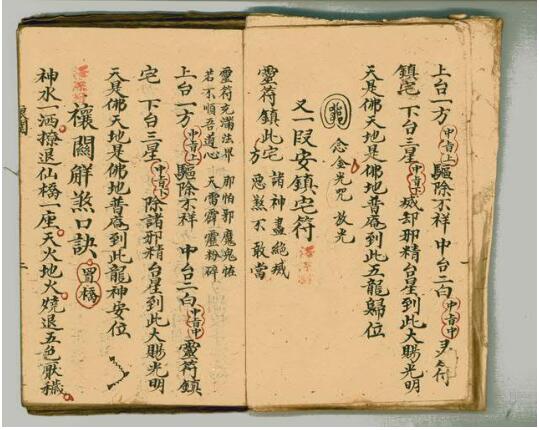 上台一方中音上驅除不祥 中台二白中音中 符
鎮宅 下台三星中音下 却邪精台星到此大賜光明
天是佛天地是佛地普庵到此五龍歸位
念金光咒 放光
又一段安鎮宅符
靈符鎮此宅 諸神盡絕
方 惡煞不敢當
靈符充滿法界 那怕邪魔鬼怪
若不順吾道心 天雷霹靂粉碎
上台一方中音上驅除不祥 中台二白中音中靈符鎮
宅 下台三星中音下除諸邪精台星到此大賜光明
天是佛天地是佛地普庵到此龍神安位
禳關解煞口訣
神水一洒 退仙橋一座天火地火燒退五色厭穢